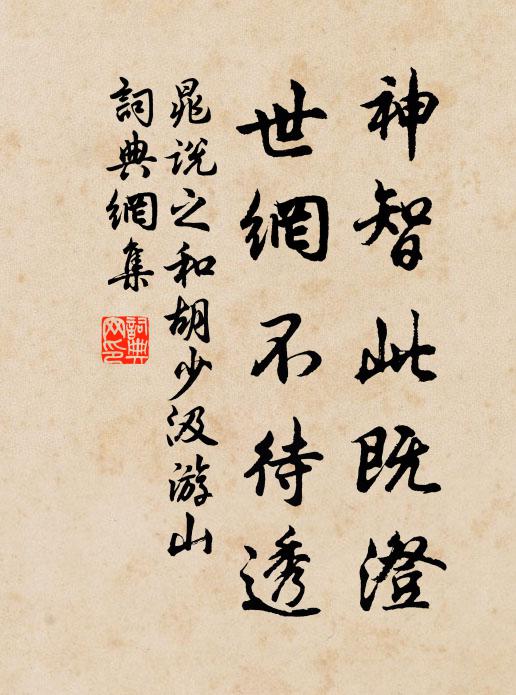 神智此既澄
世網不待透
晁說之和胡少汲游山
詞典網集
詞典
网印